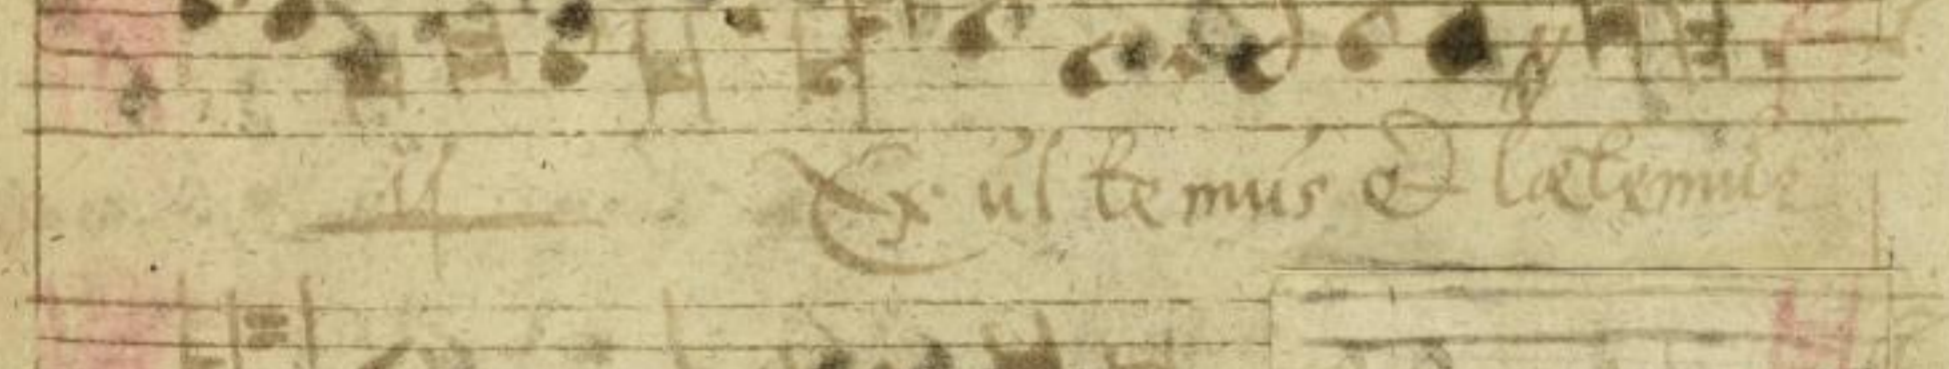 ij Ex ul te mus & lætemur